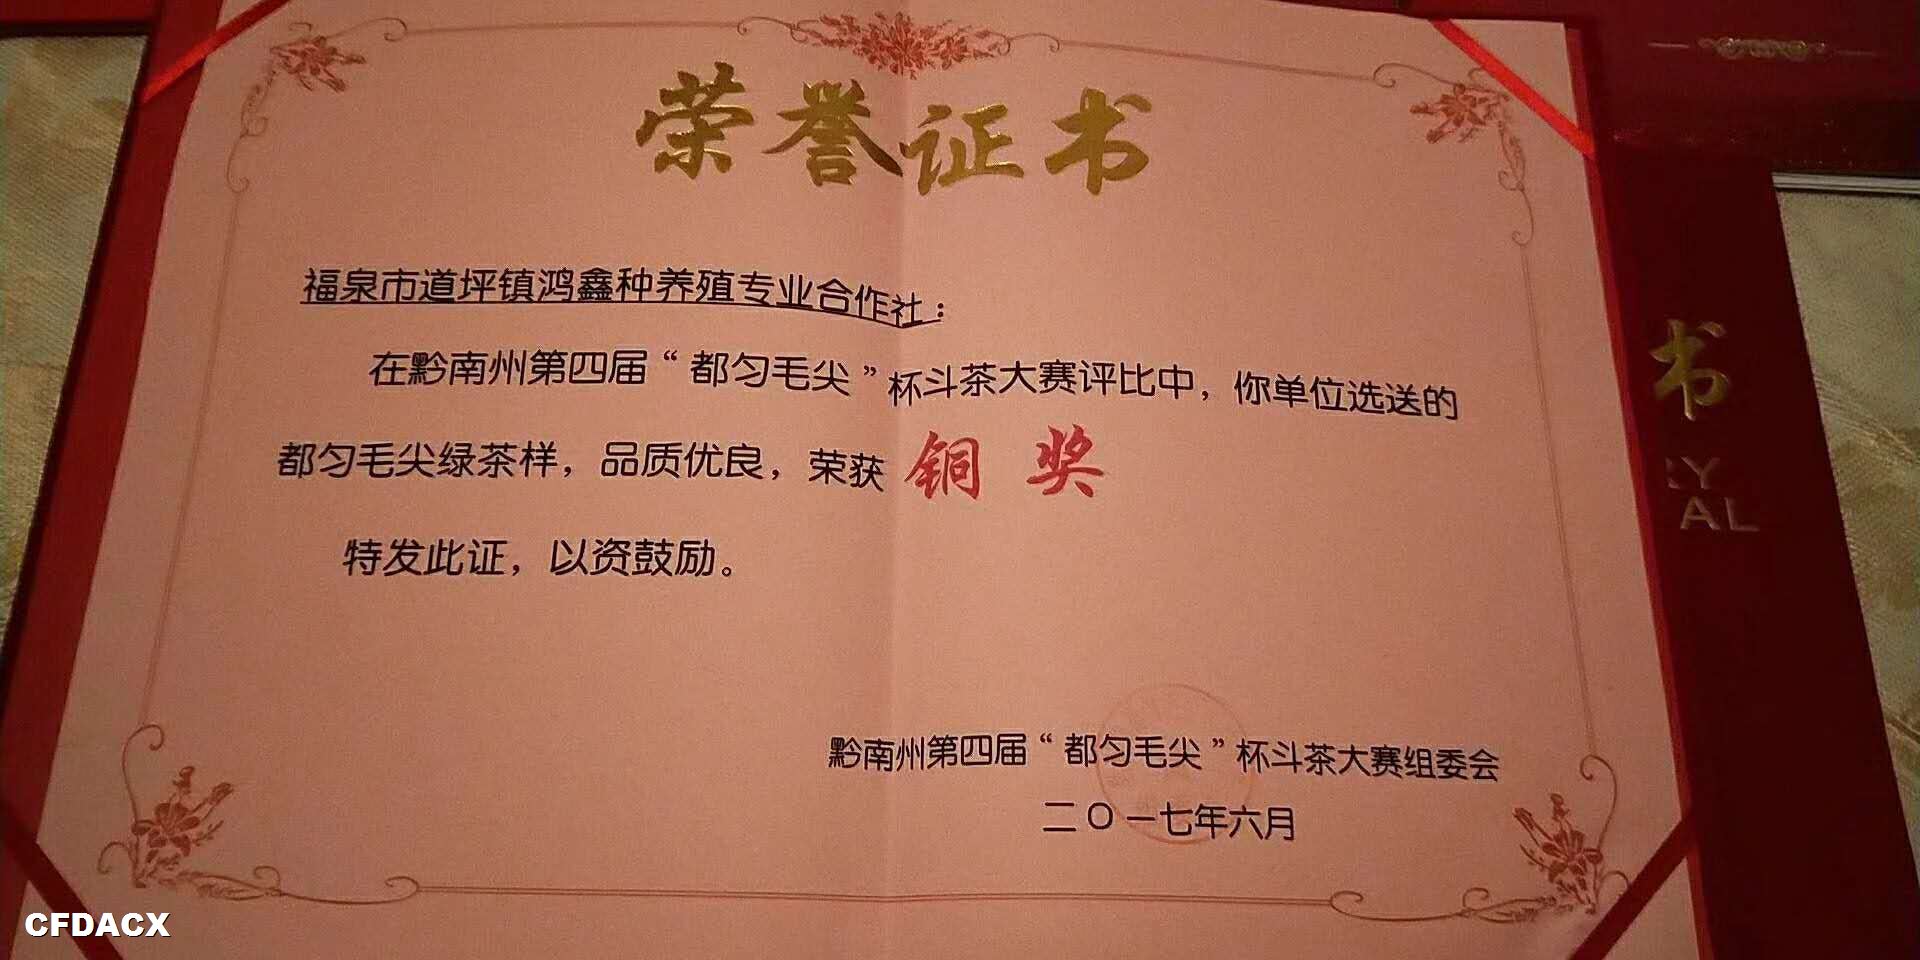 荣誉证书
福泉市道坪镇鸿鑫种养殖专业合作社：
在黔南州第四届“都匀毛尖”杯斗茶大赛评比中，你单位选送的
都匀毛尖绿茶样，品质优良，荣获 铜奖
特发此证，以资鼓励。
黔南州第四届“都匀毛尖”杯斗茶大赛组委会
二〇一七年六月
书
AL
CFDACX